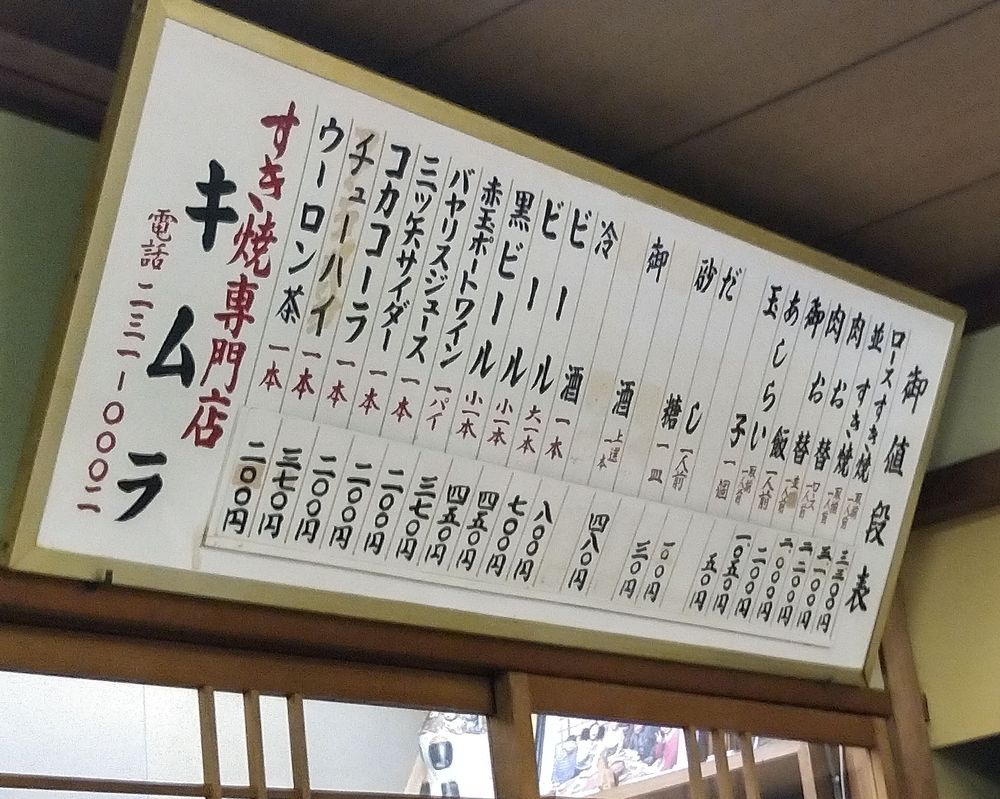 御値段表
ロースすき焼 最初一人前 三三〇〇円
並すき焼 最初一人前 三一〇〇円
肉お替 ロース一人前 二二〇〇円
肉お替 並一人前 二〇〇〇円
御飯 一人前 二〇〇円
あしらい 最初一人前 一〇五〇円
玉子 一個 五〇円
だし 一人前 一〇〇円
砂糖 一皿 三〇円
御酒 上選一本 四八〇円
冷酒 一本 八〇〇円
ビール 大一本 七〇〇円
ビール 小一本 四五〇円
黒ビール 小一本 四五〇円
赤玉ポートワイン 一パイ 三七〇円
バヤリスジュース 一本 二〇〇円
三ツ矢サイダー 一本 二〇〇円
コカコーラ 一本 二〇〇円
チューハイ 一本 三七〇円
ウーロン茶 一本 二〇〇円
すき焼専門店
キムラ
電話 二三一-〇〇〇二